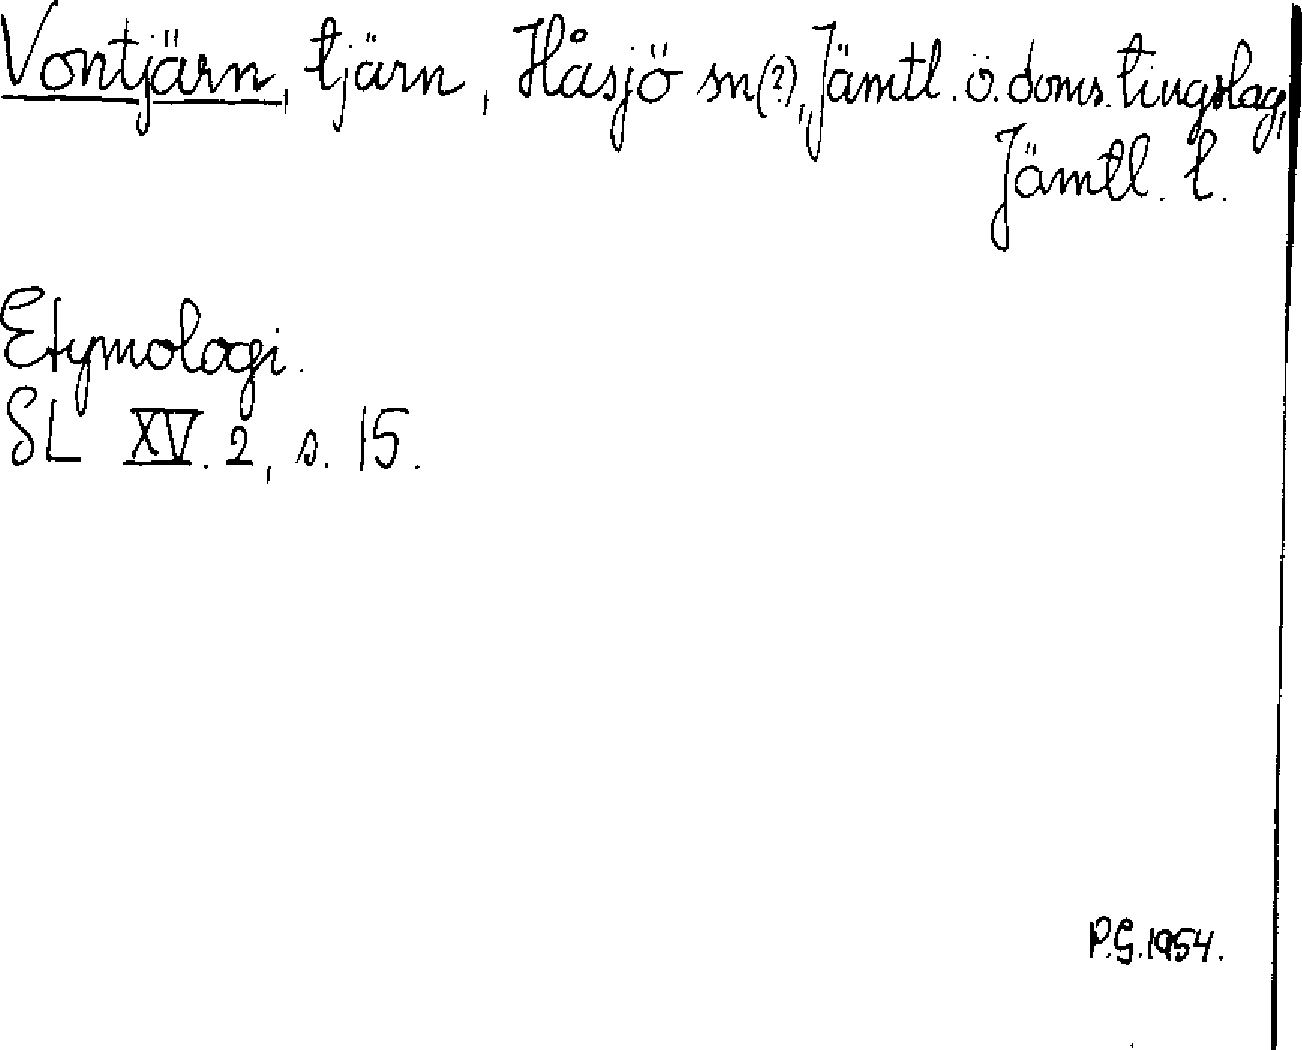 Vontjärn, tjärn, Håsjö sn(?), Jämtl. ö. doms. tingslag,
Jämtl. l.
Etymologi.
SL XV. 2, s. 15.
P.G. 1954.